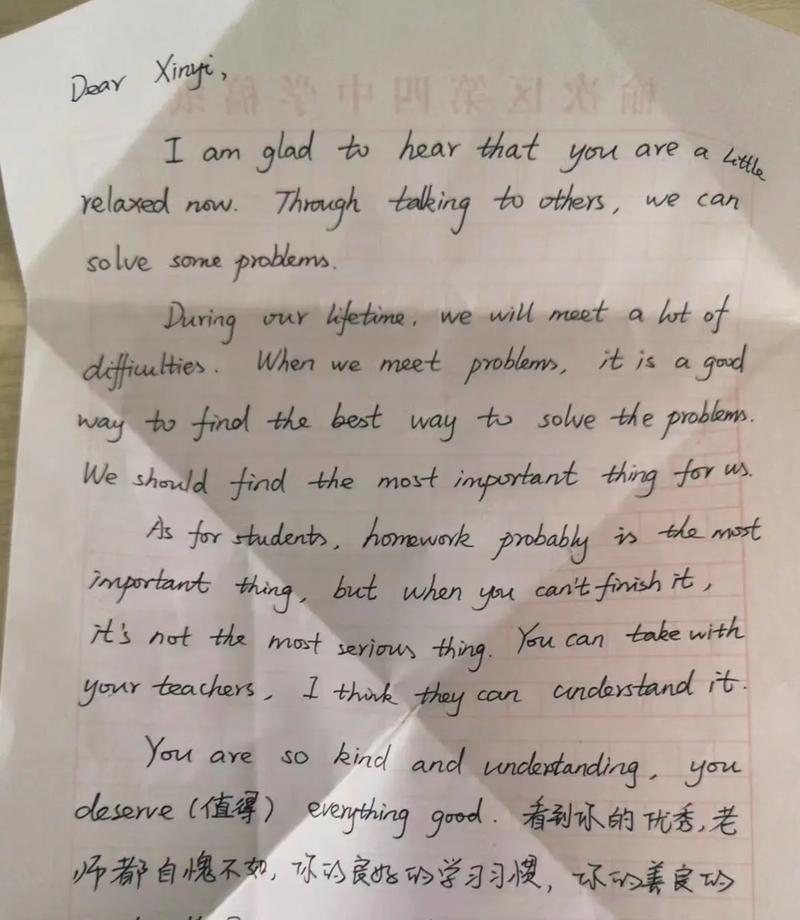 Dear Xinyi,
榆次区第四中学稿纸
I am glad to hear that you are a little
relaxed now. Through talking to others, we can
solve some problems.
During our lifetime, we will meet a lot of
difficulties. When we meet problems, it is a good
way to find the best way to solve the problems.
We should find the most important thing for us.
As for students, homework probably is the most
important thing, but when you can't finish it,
it's not the most serious thing. You can take with
your teachers, I think they can understand it.
You are so kind and understanding, you
deserve (值得) everything good. 看到你的优秀,老
师都自愧不如,你的良好的学习习惯,你的善良的